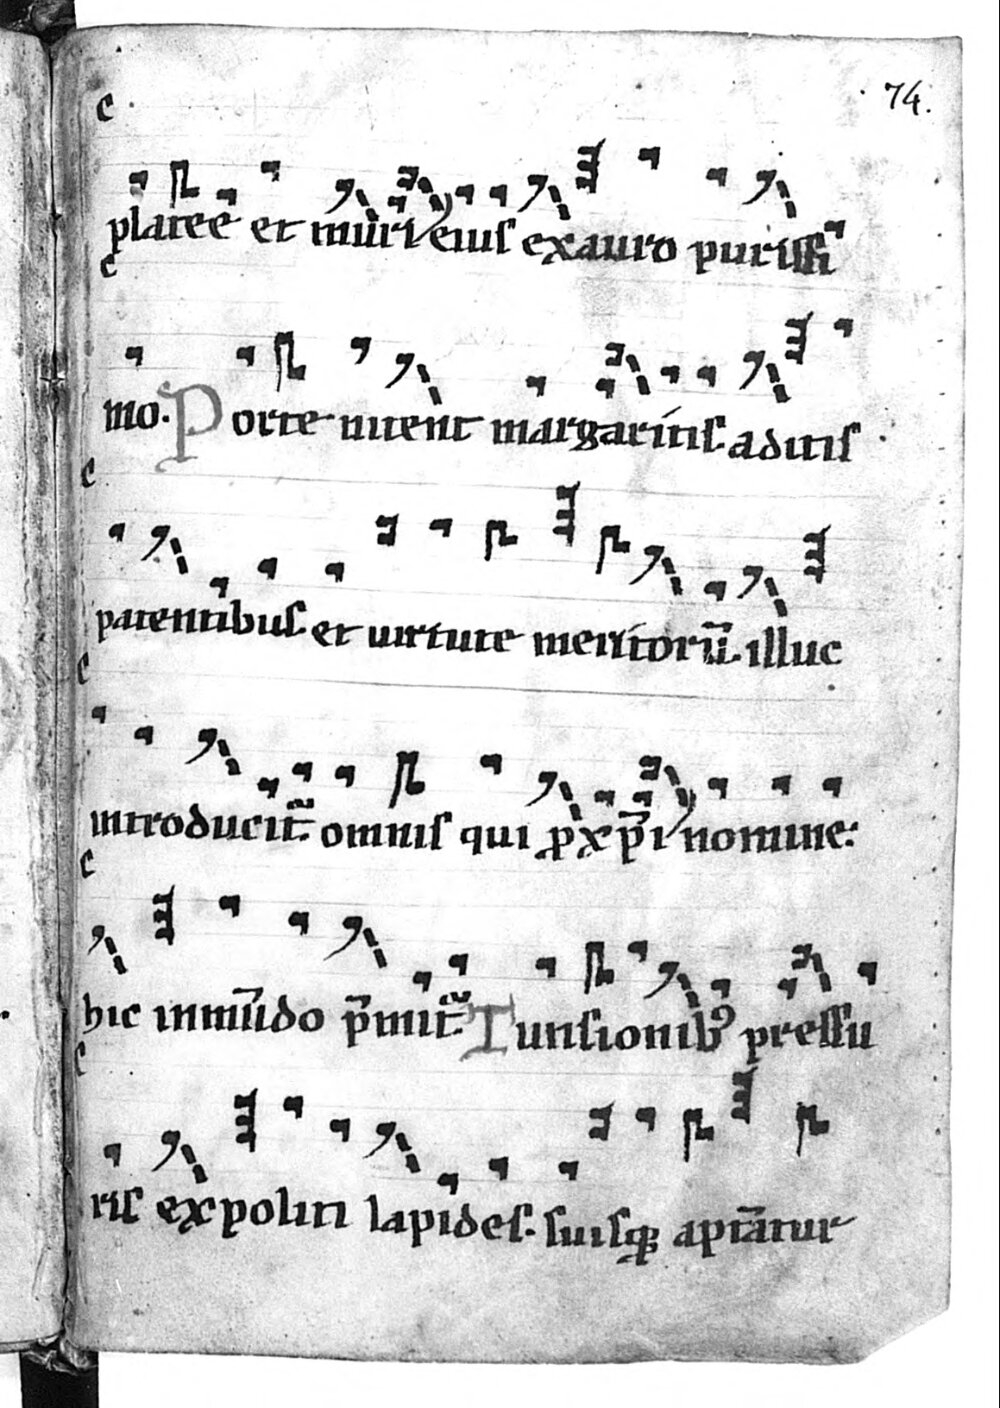 74.
c
platee et muri eius ex auro purissi
c
mo. Porte nitent margaritis. aditis
c
patentibus. et uirtute meritorū. illuc
c
introducit᷑. omnis qui ꝓ xp̄i nomine:
c
hic in mūdo p̄mit᷑. Tunsionibꝰ pressu
c
ris expoliti lapides. suisqꝫ aptātur